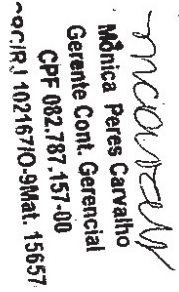 Mônica Peres Carvalho
Gerente Cont. Gerencial
CPF 082.787.157-00
102167/O-9Mat. 15657